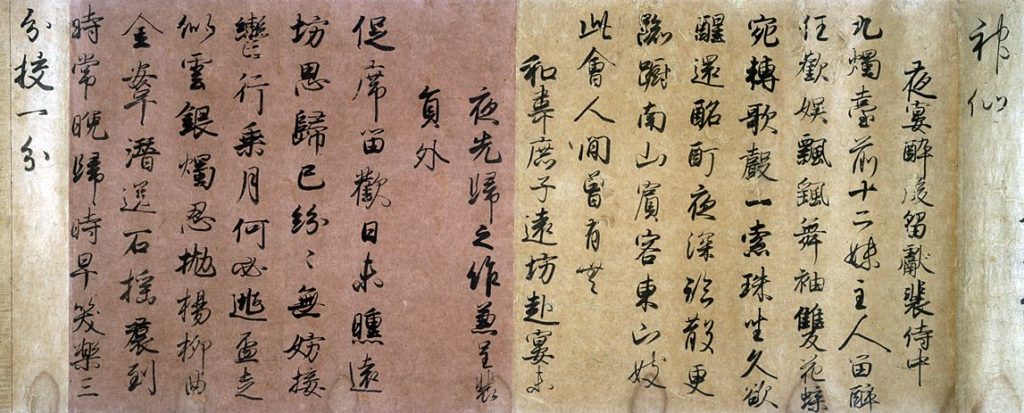 神仙
夜宴醉後留獻裴侍中
九燭臺前十二姝主人留醉
任歡娛飄颻舞袖雙飛蝶
宛轉歌聲一索珠坐久欲
醒還酩酊夜深臨散更
踟躕南山賓客東山妓
此會人間曾有無
和韋庶子遠坊赴宴未
夜先歸之作兼呈裴
員外
促席留歡日未曛遠
坊思歸已紛〻無妨按
轡行乘月何必逃盃走
似雲銀燭忍抛楊柳曲
金鞍潛送石榴裙到
時常晚歸時早笑樂三
分校一分